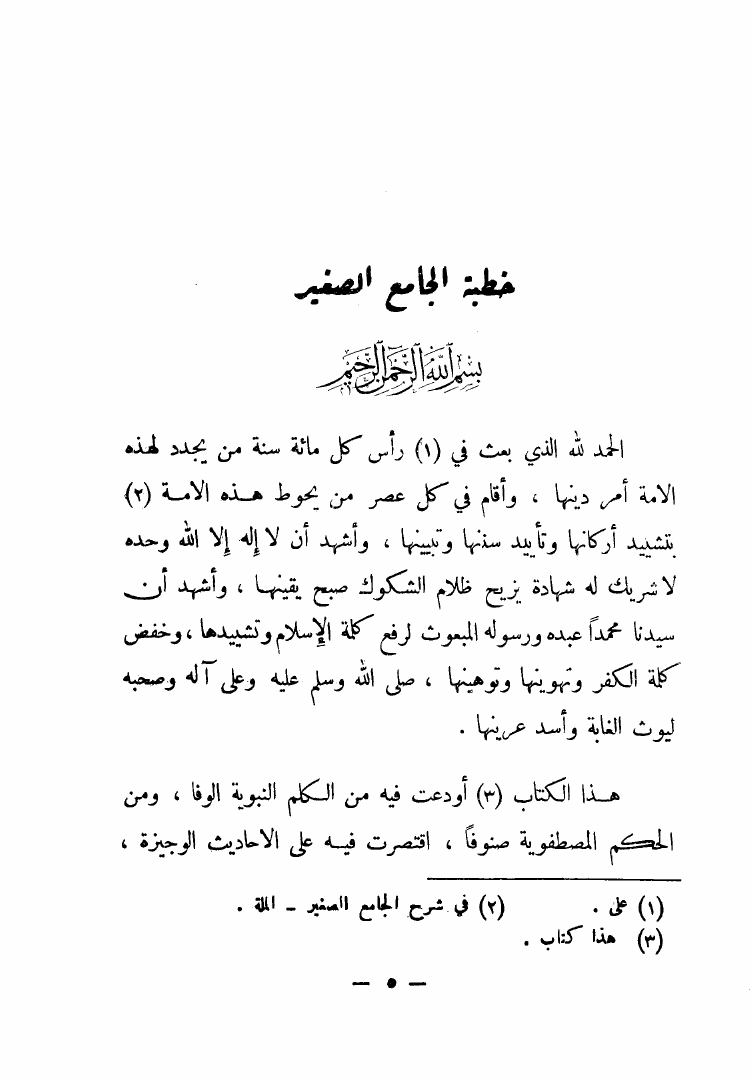 خطبة الجامع الصغير
بسم الله الرحمن الرحيم
الحمد لله الذي بعث في (١) رأس كل مائة سنة من يجدد لهذه
الامة أمر دينها ، وأقام في كل عصر من يحوط هذه الامة (٢)
بتشييد أركانها وتأييد سننها وتبيينها ، وأشهد أن لا إله إلا الله وحده
لا شريك له شهادة يزيح ظلام الشكوك صبح يقينها ، وأشهد أن
سيدنا محمداً عبده ورسوله المبعوث لرفع كلمة الإسلام وتشييدها ، وخفض
كلمة الكفر وتهوينها وتوهينها ، صلى الله وسلم عليه وعلى آله وصحبه
ليوث الغابة وأسد عرينها .
هذا الكتاب (٣) أودعت فيه من الكلم النبوية الوفا ، ومن
الحكم المصطفوية صنوفاً ، اقتصرت فيه على الاحاديث الوجيزة ،
(١) على . (٢) في شرح الجامع الصغير – الملة .
(٣) هذا كتاب .
– ٥ –